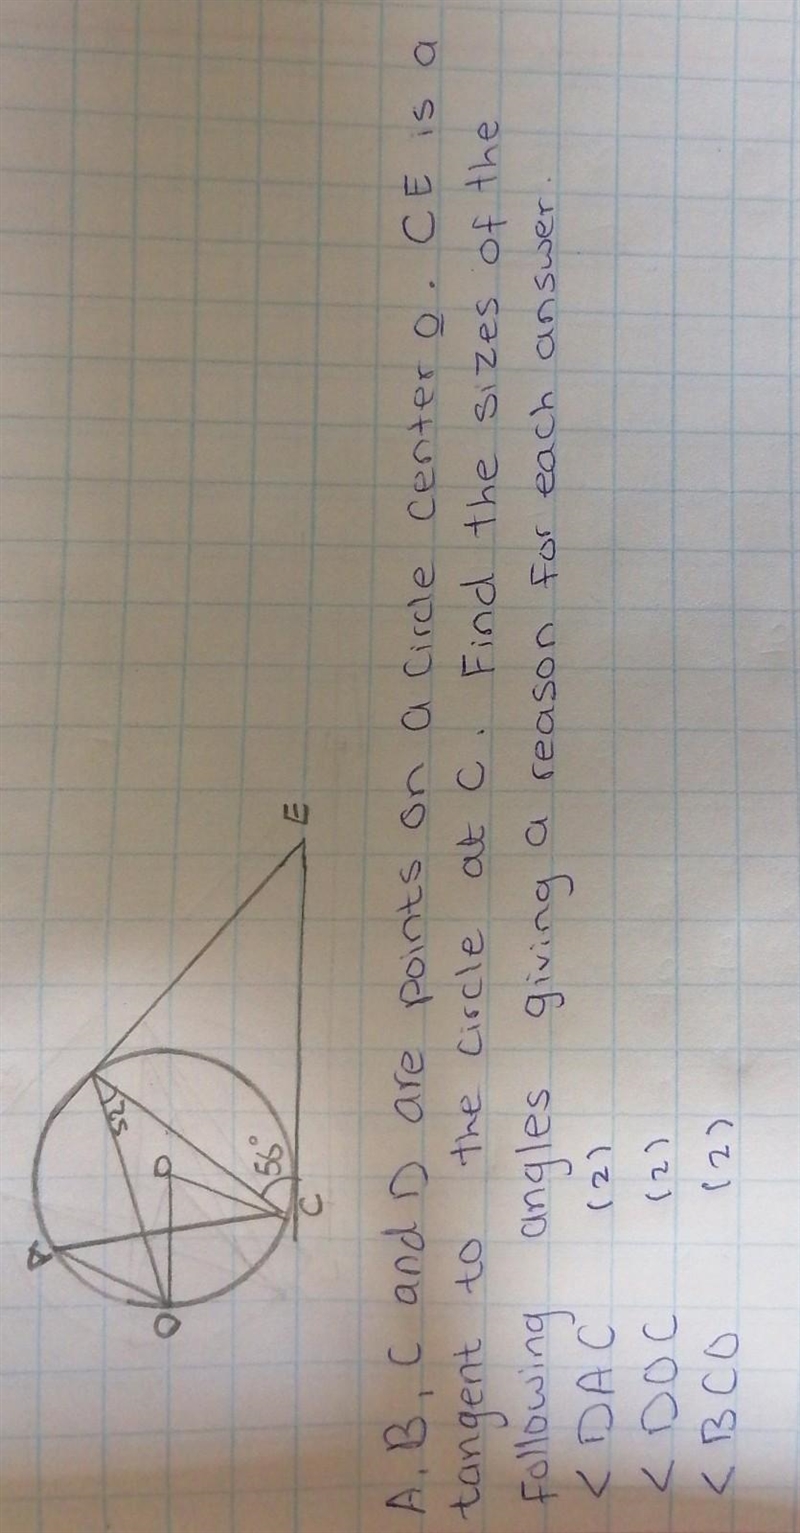 A
52
O
D
56°
C
E
A, B, C and D are points on a circle center O. CE is a
tangent to the circle at C. Find the sizes of the
following angles giving a reason for each answer.
< DAC (2)
< DOC (2)
< BCO (2)